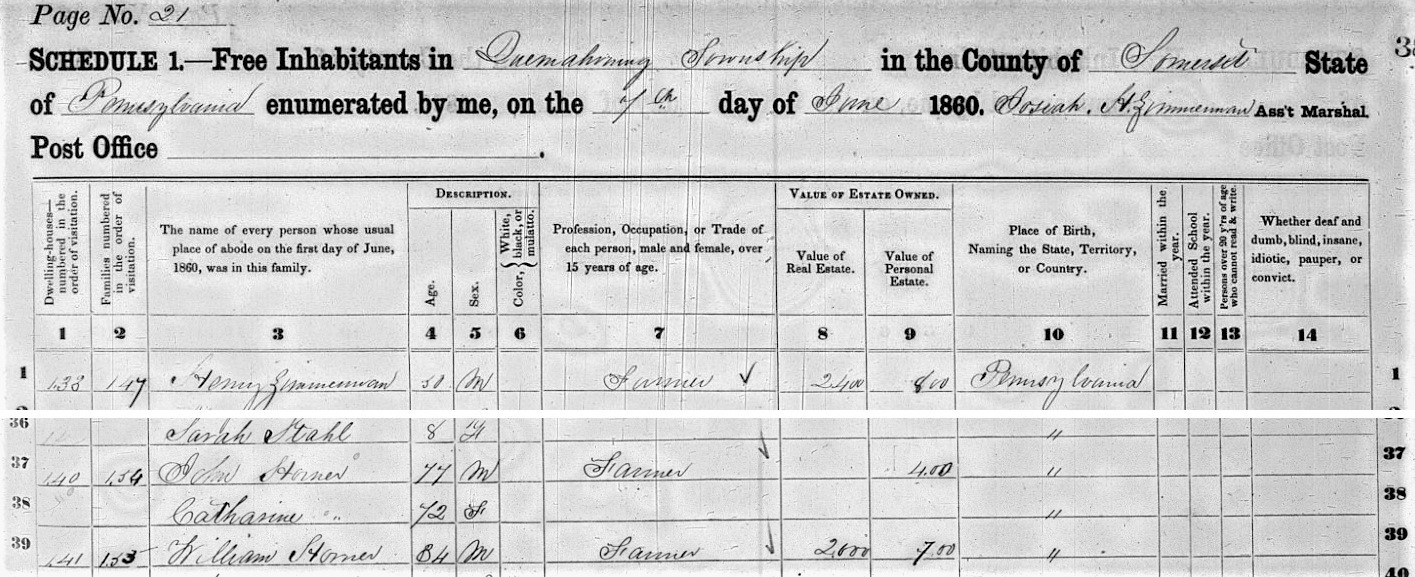 Page No. 21
SCHEDULE 1.—Free Inhabitants in Quemahoning Township in the County of Somerset State
of Pennsylvania enumerated by me, on the day of June 1860. Josiah H Zimmerman Ass't Marshal.
Post Office .
DESCRIPTION. VALUE OF ESTATE OWNED.
Dwelling-houses—numbered in the order of visitation.
Families numbered in the order of visitation.
The name of every person whose usual place of abode on the first day of June, 1860, was in this family.
Age.
Sex.
Color, { White, black, or mulatto.
Profession, Occupation, or Trade of each person, male and female, over 15 years of age.
Value of Real Estate.
Value of Personal Estate.
Place of Birth, Naming the State, Territory, or Country.
Married within the year.
Attended School within the year.
Persons over 20 y'rs of age who cannot read & write.
Whether deaf and dumb, blind, insane, idiotic, pauper, or convict.
1 2 3 4 5 6 7 8 9 10 11 12 13 14
1 138 147 Henry Zimmerman 50 M Farmer ✓ 2400 800 Pennsylvania 1
36 Sarah Stahl 8 F "
37 140 154 John Horner 77 M Farmer 400 " 37
38 Catharine " 72 F " 38
39 141 155 William Horner 34 M Farmer 2000 700 " 39
40